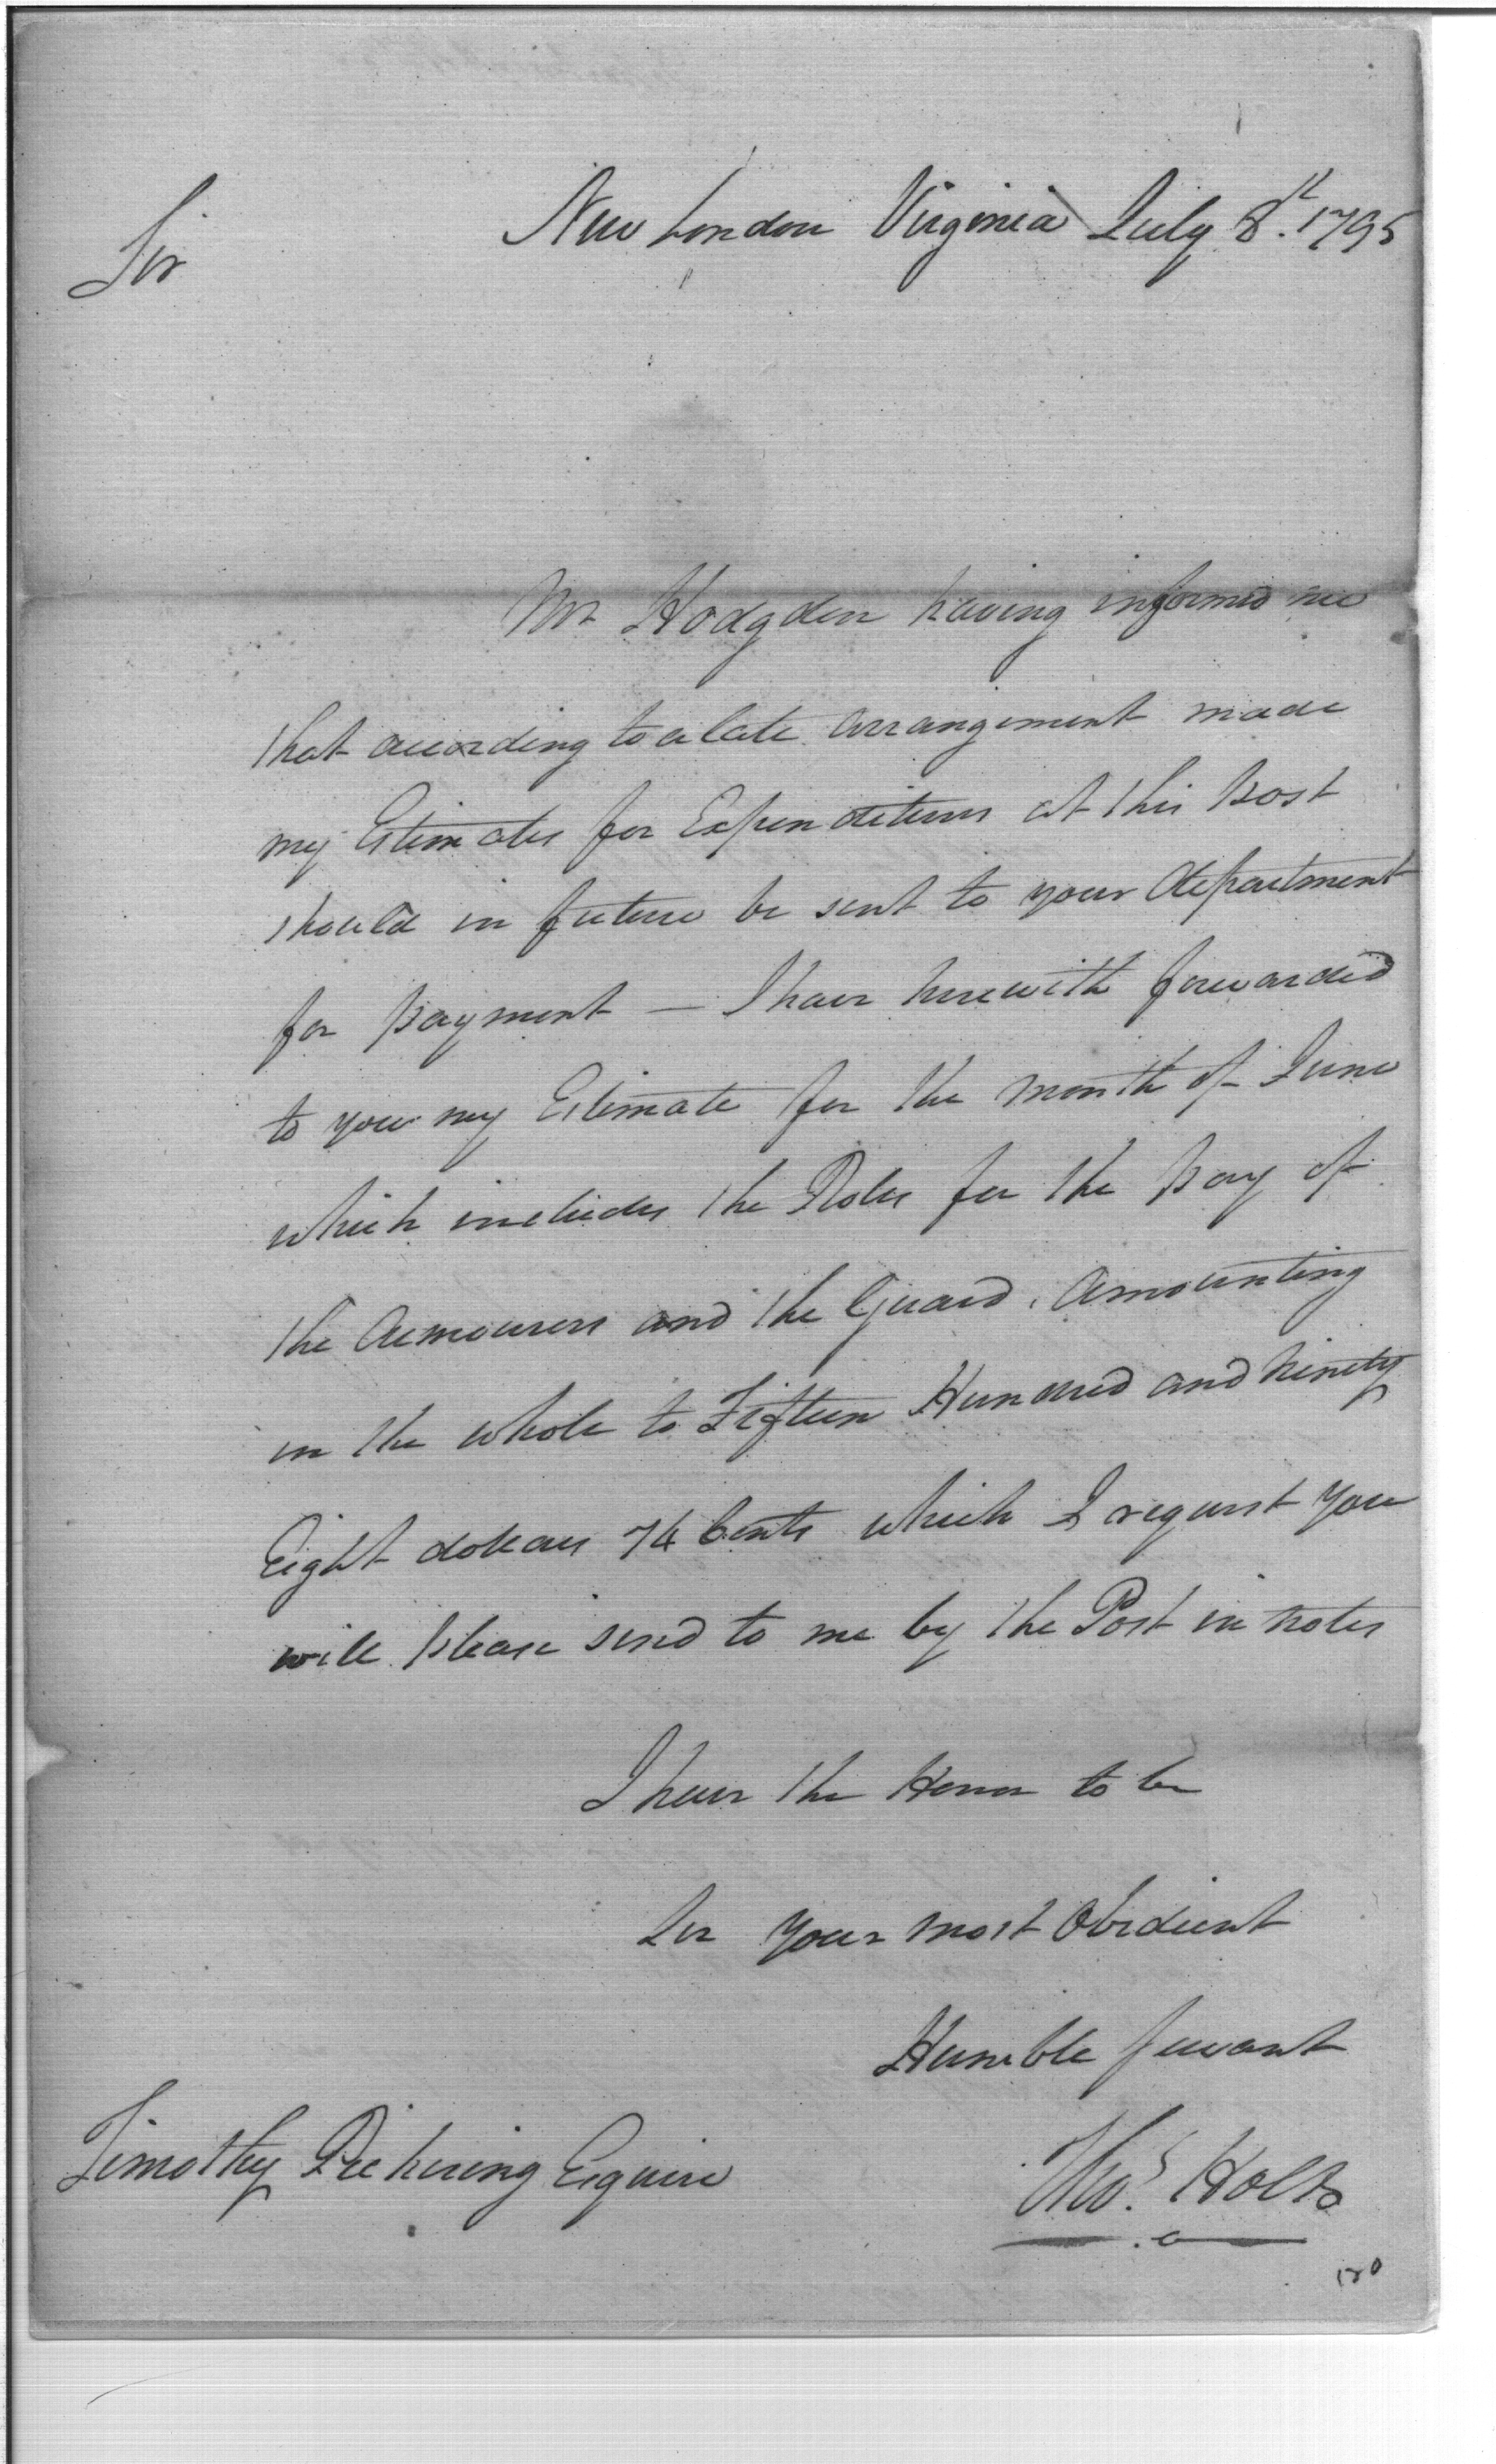 New London Virginia July 8th. 1795
Sir
Mr Hodgden having informed me
that according to a late arrangement made
my Estimates for Expenditures at this post
should in future be sent to your department
for payment — I have herewith forwarded
to you my Estimate for the month of June
which includes the Roles for the pay of
the Armourers and the Guard, amounting
in the whole to Fifteen Hundred and ninety
Eight dollars 74 Cents which I request you
will please send to me by the Post in notes
I have the Honor to be
Sir your most Obedient
Humble Servant
Thos. Holt
Timothy Pickering Esquire
120